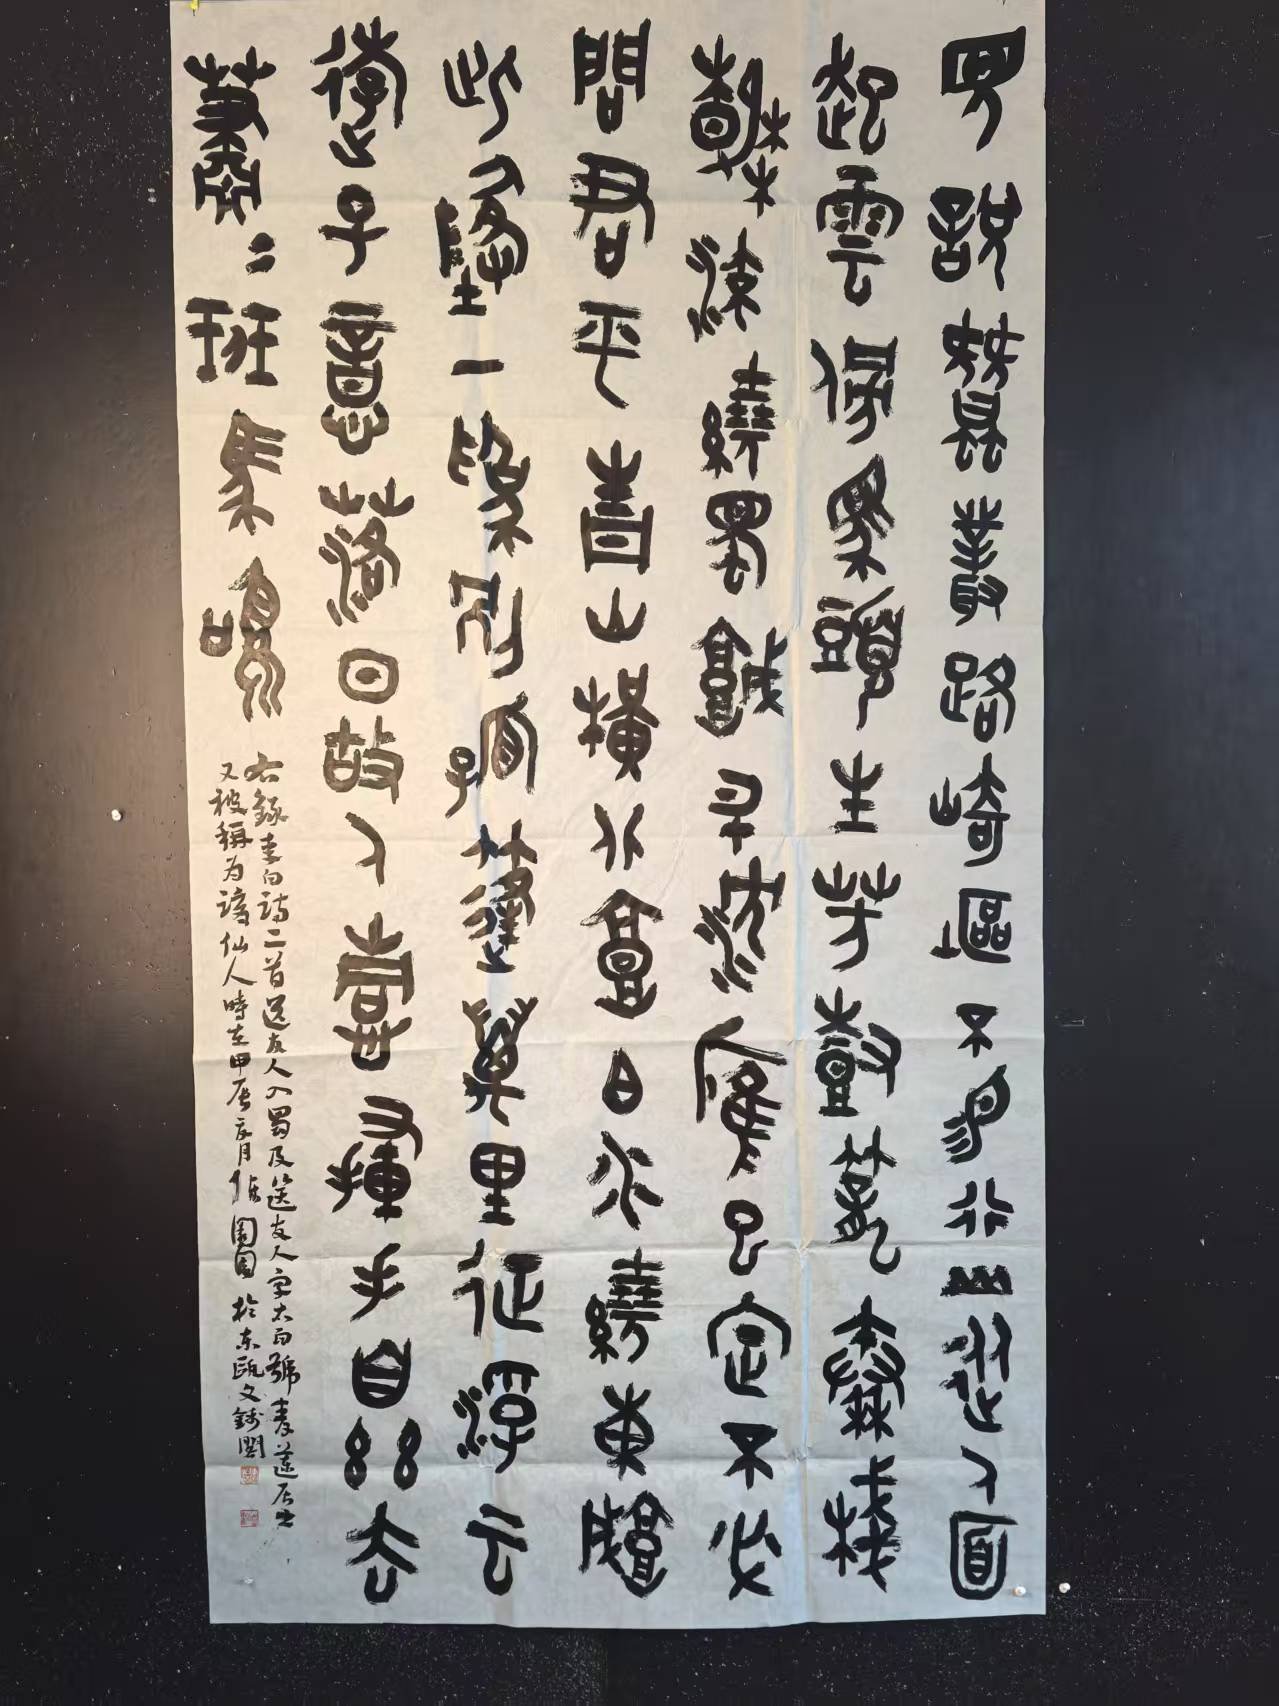 見說蠶叢路崎嶇不易行山從人面
起雲傍馬頭生芳樹籠秦棧
春流繞蜀城升沉應已定不必
問君平青山橫北郭白水繞東城
此地一為別孤蓬萬里征浮云
遊子意落日故人情揮手自茲去
蕭〻班馬鳴
右錄李白詩二首送友人入蜀及送友人字太白號青蓮居士
又被稱为謫仙人時在甲辰月於东甌文閣